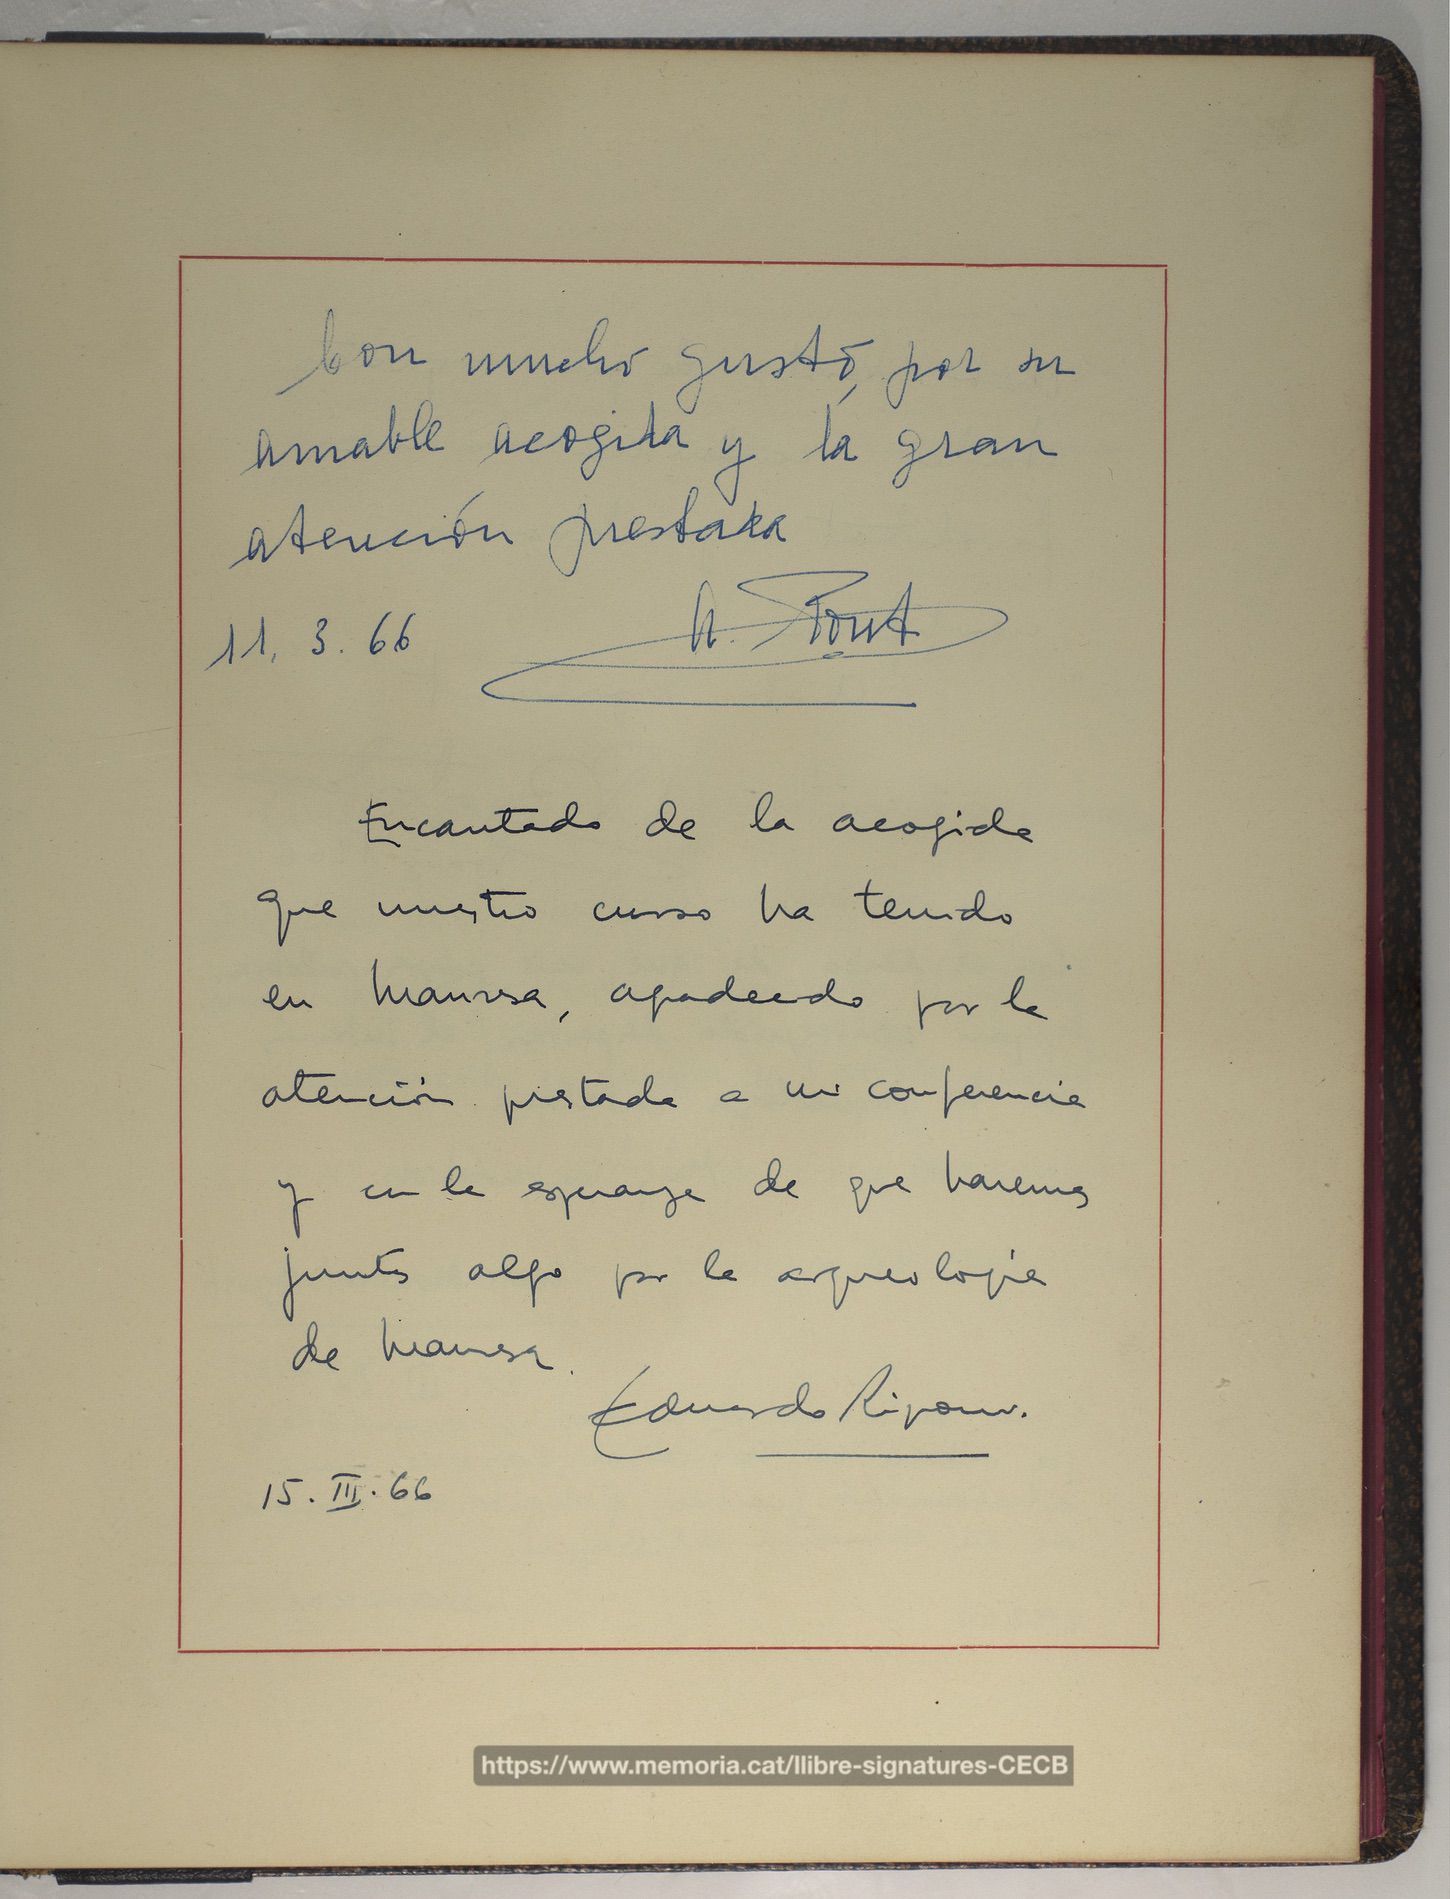 Con mucho gusto, por su
amable acogida y la gran
atención prestada
11. 3. 66
Encantado de la acogida
que nuestro curso ha tenido
en Manresa, agradecido por la
atención prestada a mi conferencia
y en la esperanza de que haremos
juntos algo por la arqueología
de Manresa.
Eduardo Ripoll
15. III. 66
https://www.memoria.cat/llibre-signatures-CECB